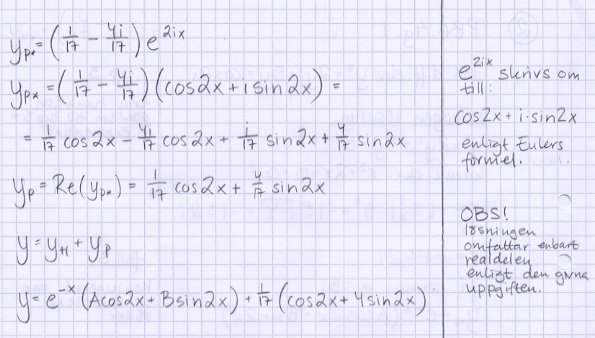 y_p* = (1/17 - 4i/17) e^2ix
y_p* = (1/17 - 4i/17) (cos2x + i sin 2x) =
= 1/17 cos 2x - 4i/17 cos 2x + i/17 sin 2x + 4/17 sin 2x
y_p = Re(y_p*) = 1/17 cos 2x + 4/17 sin 2x
y = y_H + y_p
y = e^-x (A cos 2x + B sin 2x) + 1/17 (cos 2x + 4 sin 2x)
e^2ix skrivs om
till:
cos 2x + i·sin 2x
enligt Eulers
formel.
OBS!
lösningen
omfattar enbart
realdelen
enligt den givna
uppgiften.